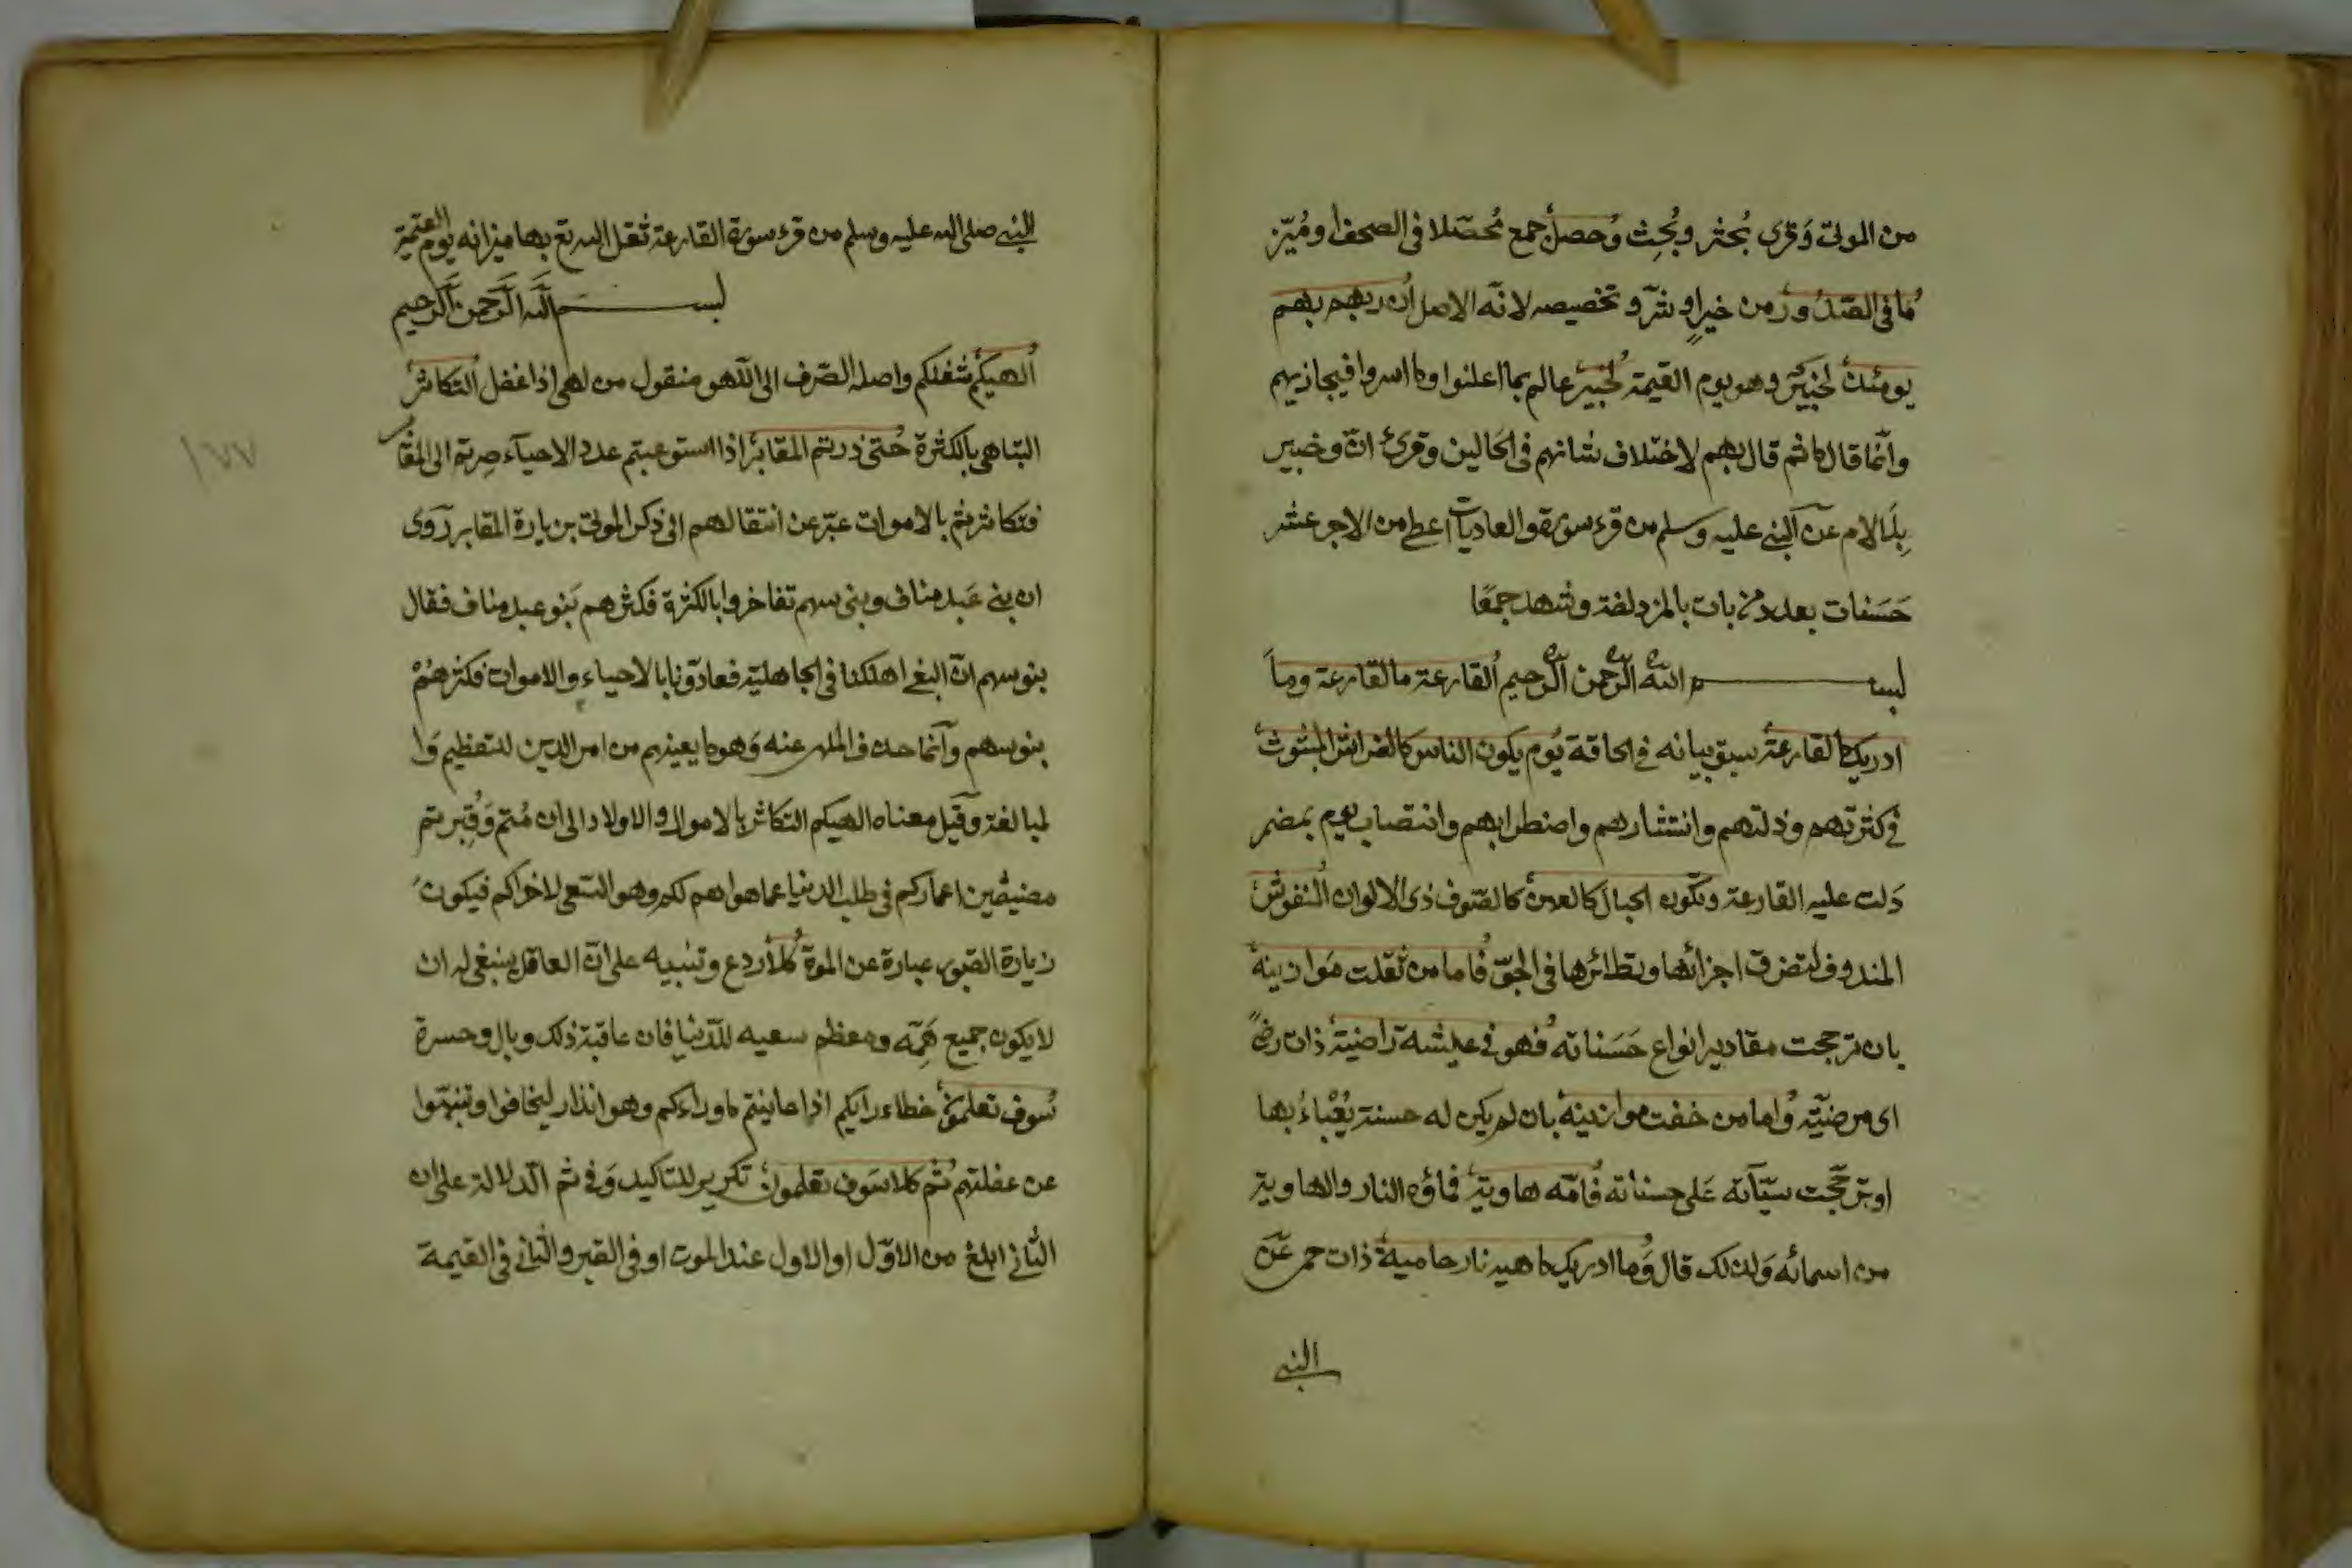 من الموتى وَقرى بُحثر وبُحِث وُحصلَ جمع مُحصّلا فى الصحف او مُيّز
مُا فى الصّدُورِ من خيرٍ او شرّ و تخصيصه لانّه الاصل اُن ربهم بهم
يومئذٍ لخبيرٌ وهو يوم القيمة لُخبير عالم بما اعلنوا وما اسروا فيجازيهم
وانّما قال ما ثم قال بهم لاختلاف شانهم فى الحَالين وقرئ انّ و خبير
بِلَا لام عن النبى عليه وسلم من قرء سورة والعاديات اعطى من الاجر عشر
حَسَنات بعدد من بات بالمزدلفة وشهد جمعًا
بسم الله الرّحمن الرّحيم اُلقارعة ما القارعة وماَ
ادريك ما لقارعة سبق بيانه فى الحاقة يُوم يكون الناس كالفراش المبثوث
فى كثرتهم وذلتهم وانتشارهم واضطرابهم وانتصاب يوم بمضمر
دَلت عليه القارعة وتكون الجبالَ كالعهن كالصّوف ذى الالوان اُلنفوش
المندوف لتفرق اجزائها وتطائرها فى الجوّ فُاما من ثقلت مَوازينهُ
بان ترجحت مقادير انواع حَسَناته فُهو فى عيشة راضية ذات رضىً
اى مرضيّة وُاما من خفت موازينهُ بان لم يكن له حسنة يُعْباءُ بها
او ترجّحت سيّآته عَلى حسناته فُامّه هاوية فماؤه النار والهاوية
من اسمائه وَلذلك قال وُما ادريك ما هيه نار حامية ذات حمى عَن
النبى
النبى صلى الله عليه وسلم من قرء سورة القارعة ثقل الله تع بها ميزانه يوم القيمة
بسم الله الرّحمن الرّحيم
اُلهيكم شغلكم واصله الصّرف الى اللّهو منقول من لهى اذا غفل اُلتكاثرُ
التباهى بالكثرة حُتى زرتم المقابر اذا استوعبتم عدد الاحياء صِرتم الى المقابر
فتكاثرتم بالاموات عبّر عن انتقالهم الى ذكر الموتى بزيارة المقابر رَوى
ان بنى عَبد مناف وبنى سهم تفاخروا بالكثرة فكثرهم بَنو عبد مناف فقال
بنو سهم انّ البغى اهلكنا فى الجاهلية فعادّونا بالاحياء والاموات فكثرهُمْ
بنو سهم وانّما حذف الملهى عنه وَهو ما يعينهم من امر الدين للتعظيم وَا
لمبالغة وَقيل معناه الهيكم التكاثر بالاموال والاولاد الى ان مُتم وَقُبِرتم
مضيعّين اعماركم فى طلب الدنيا عما هو اهم لكم وهو السّعى لاخراكم فيكون
زيارة القبور عبارة عن الموة كُلا ردع وتنبيه على انّ العاقل ينبغى له ان
لا يكون جميع هَمّه ومعظم سعيه للدّنيا فان عاقبة ذلك وبال وحسرة
سُوف تعلمون خطاء رايكم اذا عاينتم ما وراءكم وهو انذار ليخافوا وتنبهّوا
عن غفلتهم ثُم كلا سَوف تعلمون تكرير للتاكيد وَفى ثم الدّلالة على ان
الثانى ابلغ من الاوّل او الاول عند الموت او فى القبر والثّانى فى القيمة
١٧٧